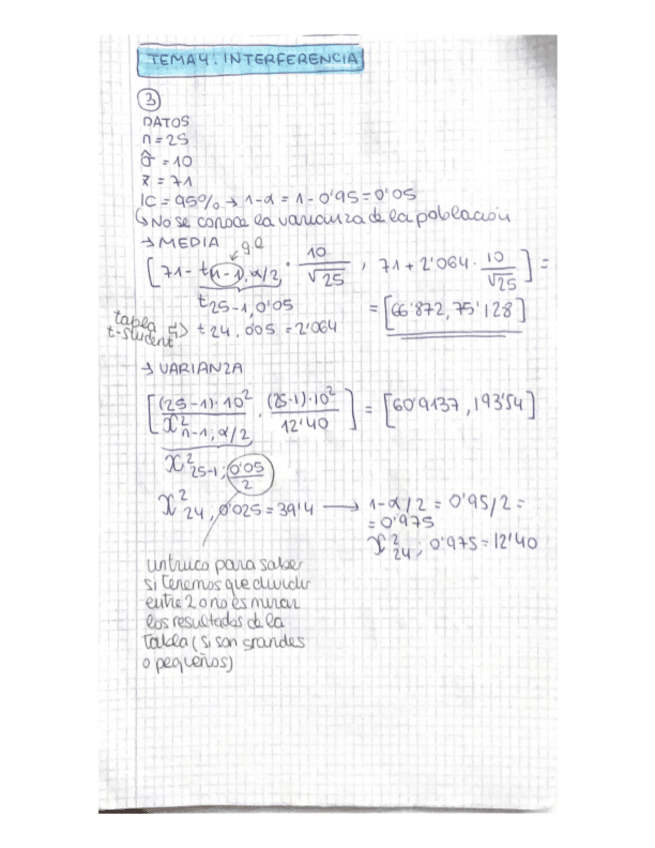 TEMA 4: INTERFERENCIA
3
DATOS
n = 25
σ̂ = 10
x̄ = 71
IC = 95% → 1-α = 1 - 0'95 = 0'05
↳ No se conoce la varianza de la población
→ MEDIA
gl
[71 - t(n-1), α/2 · 10/√25 , 71 + 2'064 · 10/√25] =
t25-1, 0'05 = [66'872, 75'128]
tabla t-student ⇨ t24. 005 = 2'064
→ VARIANZA
[(25-1)·10²/χ²n-1; α/2 , (25-1)·10²/12'40] = [60'9137, 193'54]
χ²25-1; 0'05/2
χ²24, 0'025 = 39'4 → 1-α/2 = 0'95/2 =
= 0'975
χ²24; 0'975 = 12'40
un truco para saber
si tenemos que dividir
entre 2 o no es mirar
los resultados de la
tabla (si son grandes
o pequeños)